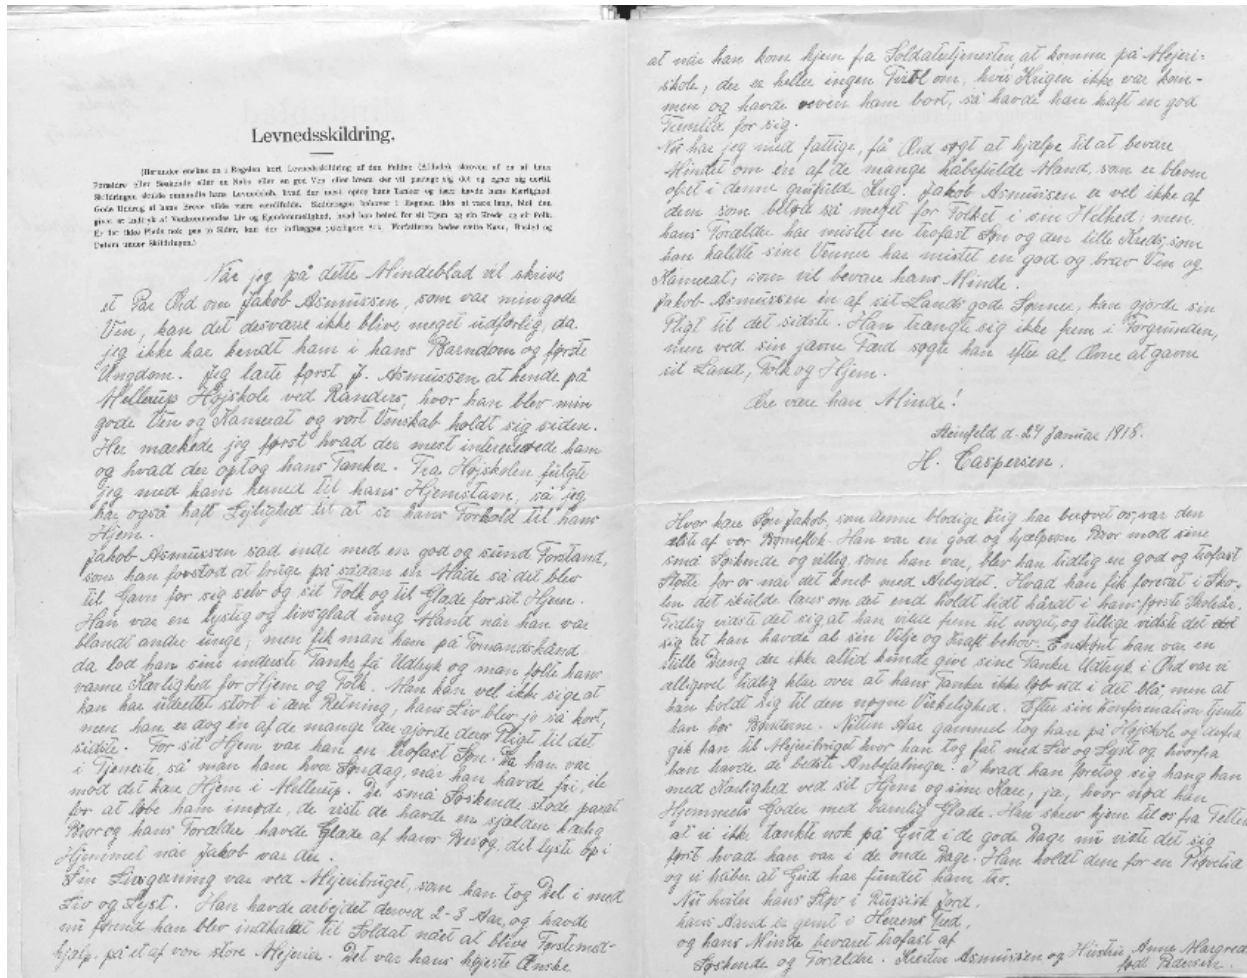 Levnedsskildring.
(Herunder ønskes en i Regelen kort Levnedsskildring af den Faldne (Afdøde), skreven af en af hans
Forældre eller Søskende eller en Nabo eller en god Ven eller hvem der vil paatage sig det og egner sig dertil.
Skildringen skulde omhandle hans Levnedsløb, hvad der mest optog hans Tanker og især havde hans Kærlighed.
Gode Uddrag af hans Breve vilde være værdifulde. Skildringen behøver i Regelen ikke at være lang, blot den
giver et Indtryk af Vedkommendes Liv og Ejendommelighed, hvad han betød for sit Hjem og sin Kreds og sit Folk.
Er der ikke Plads nok paa to Sider, kan der indlægges yderligere Ark. Forfatteren bedes sætte Navn, Bosted og
Datum under Skildringen.)
Når jeg på dette Mindeblad vil skrive
et Par Ord om Jakob Asmussen, som var min gode
Ven, kan det desværre ikke blive meget udførlig, da
jeg ikke har kendt ham i hans Barndom og første
Ungdom. Jeg lærte først J. Asmussen at kende på
Mellerup Højskole ved Randers, hvor han blev min
gode Ven og Kamerat og vort Venskab holdt sig siden.
Her mærkede jeg først hvad der mest interesserede ham
og hvad der optog hans Tanker. Fra Højskolen fulgte
jeg med ham herned til hans Hjemstavn, så jeg
har også haft Lejlighed til at se hans Forhold til hans
Hjem.
Jakob Asmussen sad inde med en god og sund Forstand,
som han forstod at bruge på sådan en Måde så det blev
til Gavn for sig selv og sit Folk og til Glæde for sit Hjem.
Han var en lystig og livsglad ung Mand når han var
blandt andre unge, men fik man ham på Tomandshånd
da lod han sine inderste Tanke få Udtryk og man følte hans
varme Kærlighed for Hjem og Folk. Man kan vel ikke sige at
han har udrettet stort i den Retning, hans Liv blev jo så kort,
men han er dog én af de mange der gjorde deres Pligt til det
sidste. For sit Hjem var han en trofast Søn. Da han var
i Tjeneste, så man ham hver Søndag, når han havde fri, ile
mod det kære Hjem i Mellerup. De små Søskende stode parat
for at løbe ham imøde, de viste de havde en sjælden kærlig
Bror og hans Forældre havde Glæde af hans Besøg, det lyste op i
Hjemmet når Jakob var der.
Sin Livsgerning var ved Mejeribruget, som han tog Del i med
Liv og Lyst. Han havde arbejdet derved 2-3 Aar, og havde
nu førend han blev indkaldt til Soldat nået at blive Førstemed-
hjælp. på et af vore store Mejerier. Det var hans højeste Ønske
at når han kom hjem fra Soldatertjenesten, at komme på Mejeri-
skole, der er heller ingen Tvivl om, hvis Krigen ikke var kom-
men og havde reven ham bort, så havde han haft en god
Fremtid for sig.
Nu har jeg med fattige, få Ord søgt at hjælpe til at bevare
Mindet om én af de mange håbefulde Mænd, som er bleven
ofret i denne grufulde Krig. Jakob Asmussen er vel ikke af
dem som betød så meget for Folket i sin Helhed; men
hans Forældre har mistet en trofast Søn og den lille Kreds, som
han kaldte sine Venner har mistet en god og brav Ven og
Kamerat, som vil bevare hans Minde.
Jakob Asmussen én af sit Lands gode Sønner, han gjorde sin
Pligt til det sidste. Han trængte sig ikke frem i Forgrunden,
men ved sin jævne Færd søgte han efter al Ævne at gavne
sit Land, Folk og Hjem.
Ære være han Minde!
Steinfeld d. 24 Januar 1918.
H. Caspersen.
Hvor kære Søn Jakob, som denne blodige Krig har berøvet os, var den
ælste af vor Børneflok. Han var en god og hjælpsom Bror mod sine
små Søskende og villig som han var, blev han tidlig en god og trofast
Støtte for os når det kneb med Arbejdet. Hvad han fik foresat i Sko-
len det skulde læres om det end holdt lidt hårdt i hans første Skoleår.
Tidlig vidste det sig, at han vilde frem til noget, og tillige vidste det
sig at han havde al sin Vilje og Kraft behov. Enskønt han var en
stille Dreng der ikke altid kunde give sine Tanker Udtryk i Ord var vi
alligevel tidlig klar over at hans Tanker ikke løb ud i det blå, men at
han holdt sig til den nøgne Virkelighed. Efter sin Konfirmation tjente
han hos Bønderne. Nitten Aar gammel tog han på Højskole og derfra
gik han til Mejeribruget hvor han tog fat med Liv og Lyst og hvorfra
han havde de bedste Anbefalinger. I hvad han foretog sig hang han
med Kærlighed ved sit Hjem og sine Kære, ja, hvor nød han
Hjemmets Goder med barnlig Glæde. Han skrev hjem til os fra Felten
at vi ikke tænkte nok på Gud i de gode Dage nu viste det sig
først hvad han var i de onde Dage. Han holdt dem for en Prøvetid
og vi håber at Gud har fundet ham tro.
Nu hviler hans Støv i Russisk Jord,
hans Aand er gemt i Herrens Fred,
og hans Minde bevaret trofast af
Søskende og Forældre. Kresten Asmussen og Hustru Anne Margrede
født Pedersen.